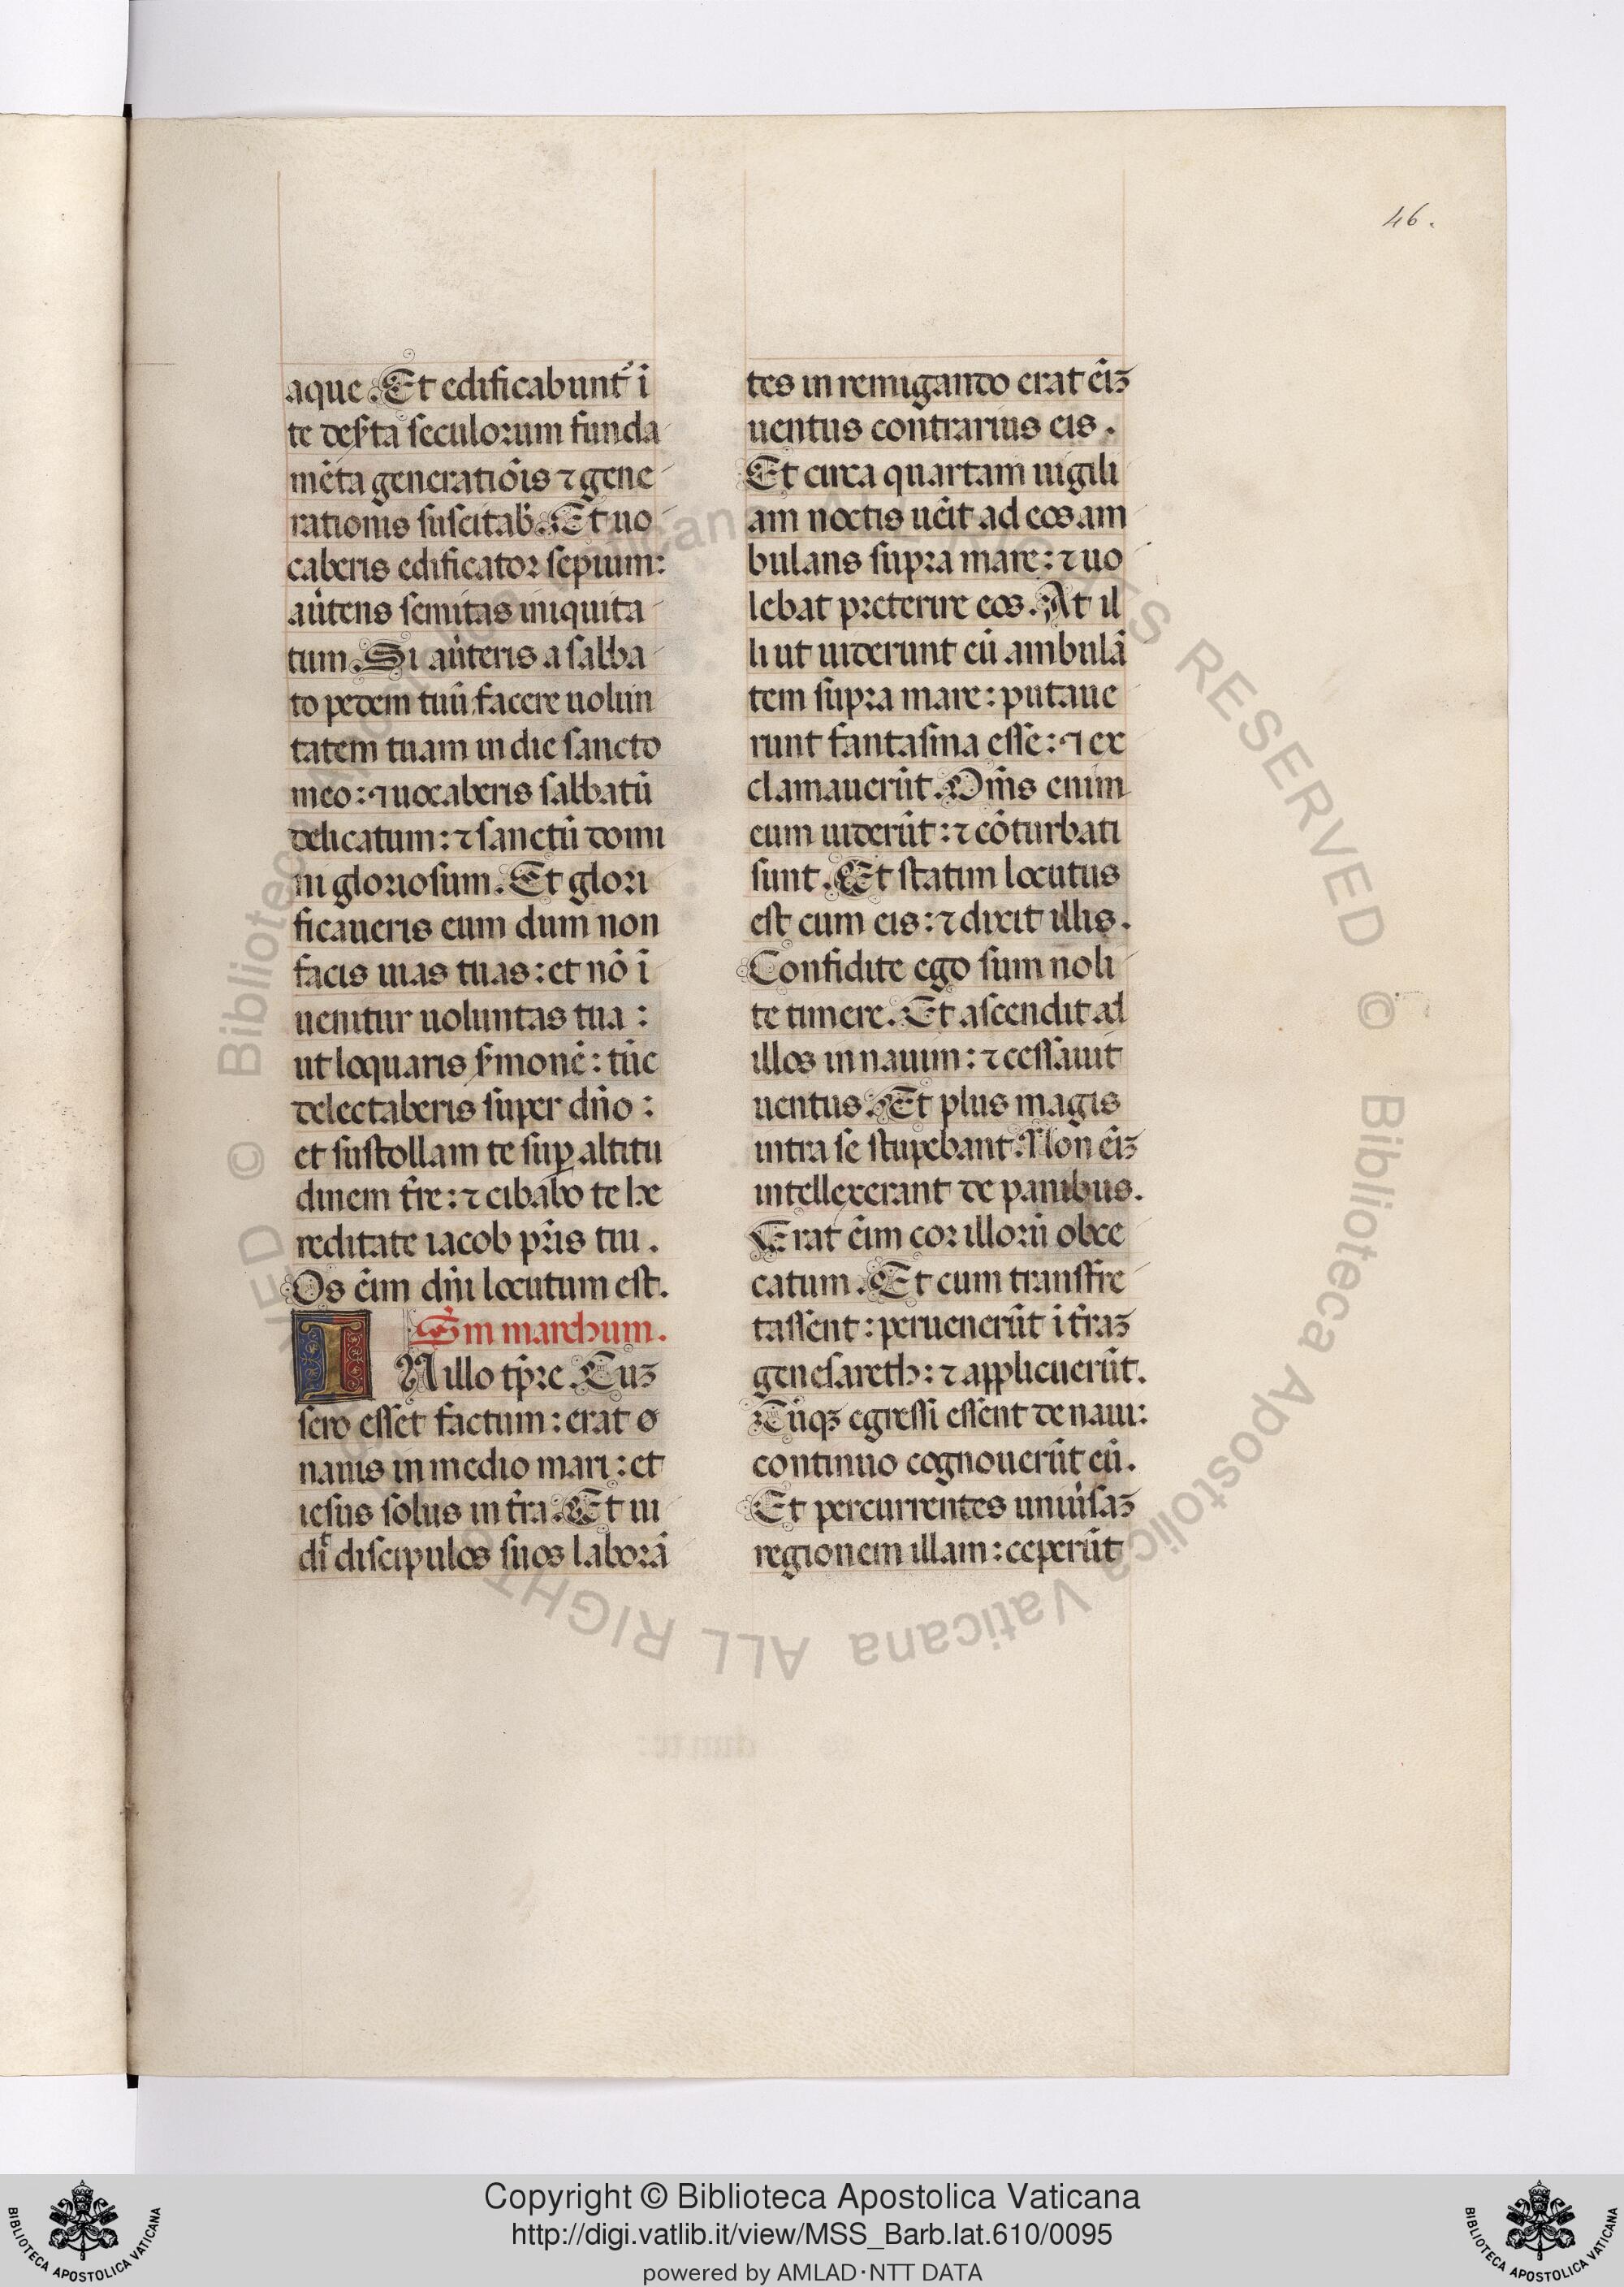 46.
aque. Et edificabunt᷒ ĩ
te des̃ta seculorum funda
mẽta generatiõis ⁊ gene
rationis suscitab̃. Et uo
caberis edificator sepium:
aũtens semitas iniquita
tum. Si aũteris a sabba
to pedem tuũ facere uolun
tatem tuam in die sancto
meo: ⁊ uocaberis sabbatũ
delicatum: ⁊ sanctũ domi
ni gloriosum. Et glori
ficaueris eum dum non
facis uias tuas: et nõ ĩ
uenitur uoluntas tua:
ut loquaris s̃monẽ: tũc
delectaberis super dño:
et sustollam te suꝑ altitu
dinem t̃re: ⁊ cibabo te he
reditate iacob pr̃is tui.
Os eĩm dñi locutum est.
Sm̃ marchum.
IN illo tp̃re. Cuʒ
sero esset factum: erat
nauis in medio mari: et
iesus solus in t̃ra. Et ui
di discipulos suos laborã
tes in remigando erat eĩʒ
uentus contrarius eis.
Et circa quartam uigili
am noctis uẽit ad eos am
bulans supra mare: ⁊ uo
lebat preterire eos. At il
li ut uiderunt eũ ambulã
tem supra mare: putaue
runt fantasma esse: ⁊ ex
clamauerũt. Om̃s enim
eum uiderũt: ⁊ cõturbati
sunt. Et statim locutus
est cum eis: ⁊ dixit illis.
Confidite ego sum noli
te timere. Et ascendit ad
illos in nauim: ⁊ cessauit
uentus. Et plus magis
intra se stupebant. Non eĩʒ
intellexerant de panibus.
Erat eĩm cor illorũ obce
catum. Et cum transfre
tassent: peruenerũt ĩ t̃raʒ
genesareth: ⁊ applicuerũt.
Cũqʒ egressi essent de naui:
continuo cognouerũt eũ.
Et percurrentes uniũsaʒ
regionem illam: ceperũt
© Biblioteca Apostolica Vaticana ALL RIGHTS RESERVED
Copyright © Biblioteca Apostolica Vaticana
http://digi.vatlib.it/view/MSS_Barb.lat.610/0095
powered by AMLAD·NTT DATA
BIBLIOTECA APOSTOLICA VATICANA
BIBLIOTECA APOSTOLICA VATICANA